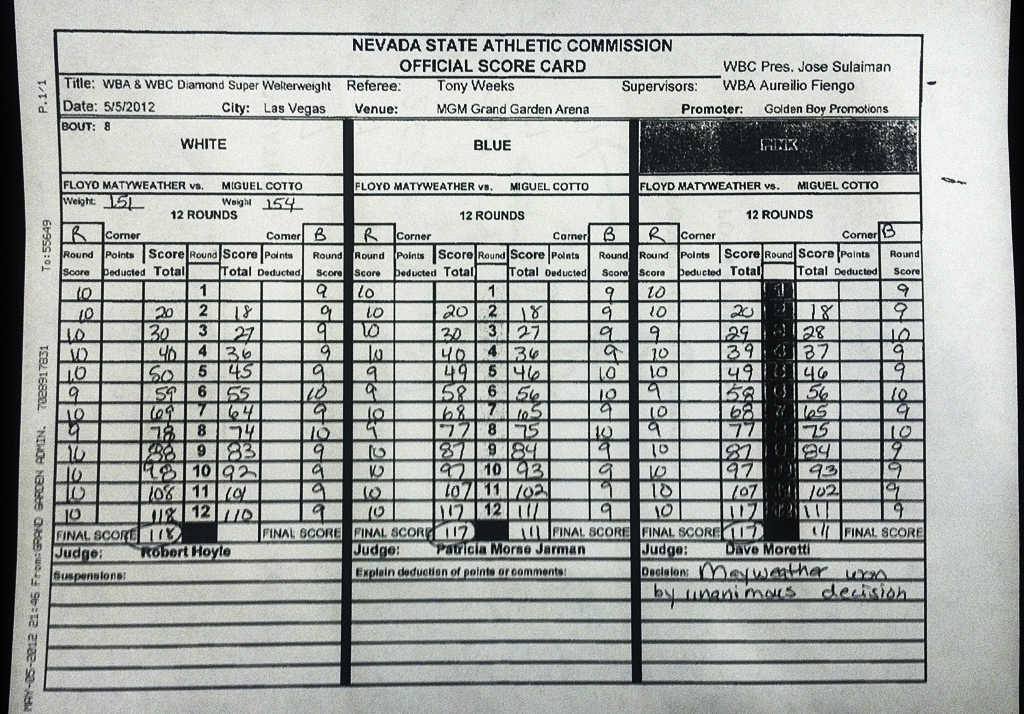 NEVADA STATE ATHLETIC COMMISSION
OFFICIAL SCORE CARD
WBC Pres. Jose Sulaiman
Title: WBA & WBC Diamond Super Welterweight Referee: Tony Weeks Supervisors: WBA Aureilio Fiengo
Date: 5/5/2012 City: Las Vegas Venue: MGM Grand Garden Arena Promoter: Golden Boy Promotions
BOUT: 8
WHITE BLUE PINK
FLOYD MATYWEATHER vs. MIGUEL COTTO FLOYD MATYWEATHER vs. MIGUEL COTTO FLOYD MATYWEATHER vs. MIGUEL COTTO
Weight: 151 Weight 154
12 ROUNDS 12 ROUNDS 12 ROUNDS
R Corner Corner B R Corner Corner B R Corner Corner B
Round Points Score Round Score Points Round Round Points Score Round Score Points Round Round Points Score Round Score Points Round
Score Deducted Total Total Deducted Score Score Deducted Total Total Deducted Score Score Deducted Total Total Deducted Score
10 1 9 10 1 9 10 9
10 20 2 18 9 10 20 2 18 9 10 20 18 9
10 30 3 27 9 10 30 3 27 9 9 29 28 10
10 40 4 36 9 10 40 4 36 9 10 39 37 9
10 50 5 45 9 9 49 5 46 10 10 49 46 9
9 59 6 55 10 9 58 6 56 10 9 58 56 10
10 69 7 64 9 10 68 7 65 9 10 68 65 9
9 78 8 74 10 9 77 8 75 10 9 77 75 10
10 88 9 83 9 10 87 9 84 9 10 87 84 9
10 98 10 92 9 10 97 10 93 9 10 97 93 9
10 108 11 101 9 10 107 11 102 9 10 107 102 9
10 118 12 110 9 10 117 12 111 9 10 117 111 9
FINAL SCORE 118 FINAL SCORE FINAL SCORE 117 111 FINAL SCORE FINAL SCORE 117 111 FINAL SCORE
Judge: Robert Hoyle Judge: Patricia Morse Jarman Judge: Dave Moretti
Suspensions: Explain deduction of points or comments: Decision: Mayweather won
by unanimous decision
MAY-05-2012 21:46 From:GRAND GARDEN ADMIN. 7028917831 To:55649 P.1/1